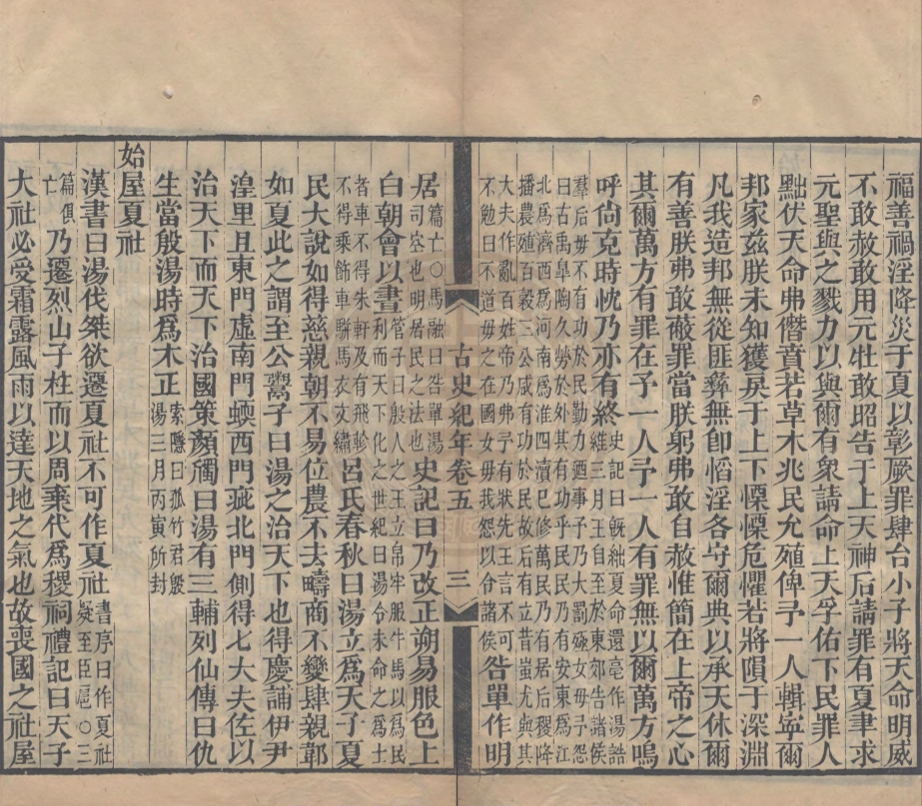 福善禍淫降災于夏以彰厥罪肆台小子將天命明威
不敢赦敢用元牡敢昭告于上天神后請罪有夏聿求
元聖與之戮力以與爾有衆請命上天孚佑下民罪人
黜伏天命弗僭賁若草木兆民允殖俾予一人輯寧爾
邦家兹朕未知獲戾于上下慄慄危懼若將隕于深淵
凡我造邦無從匪彝無卽慆淫各守爾典以承天休爾
有善朕弗敢蔽罪當朕躬弗敢自赦惟簡在上帝之心
其爾萬方有罪在予一人予一人有罪無以爾萬方嗚
呼尚克時忱乃亦有終史記曰旣絀夏命還亳作湯誥維三月王自至於東郊告諸侯
羣后毋不有功於民勤力迺事予乃大罰殛女毋予怨曰古禹皐陶久勞於外其有功乎民民乃有安東爲江
北爲濟西爲河南爲淮四瀆已修萬民乃有居后稷降播農殖百穀三公咸有功於民故后有立昔蚩尤與其
大夫作亂百姓帝乃弗予有狀先王言不可不勉曰不道毋之在國女毋我怨以令諸侯咎單作明
古史紀年卷五 三
居篇亡○馬融曰咎單湯司空也明居民之法也史記曰乃改正朔易服色上
白朝會以晝管子曰殷人之王立帛牢服牛馬以爲民利而天下化之世紀曰湯令未命之爲士
者車不得朱軒及有飛軨不得乘飾車駢馬衣文繡呂氏春秋曰湯立爲天子夏
民大說如得慈親朝不易位農不去疇商不變肆親郼
如夏此之謂至公鬻子曰湯之治天下也得慶誧伊尹
湟里且東門虛南門蝡西門疵北門側得七大夫佐以
治天下而天下治國策顏斶曰湯有三輔列仙傳曰仇
生當殷湯時爲木正索隱曰孤竹君殷湯三月丙寅所封
始屋夏社
漢書曰湯伐桀欲遷夏社不可作夏社書序曰作夏社疑至臣扈○三
篇俱亡乃遷烈山子柱而以周棄代爲稷祠禮記曰天子
大社必受霜露風雨以達天地之氣也故喪國之社屋